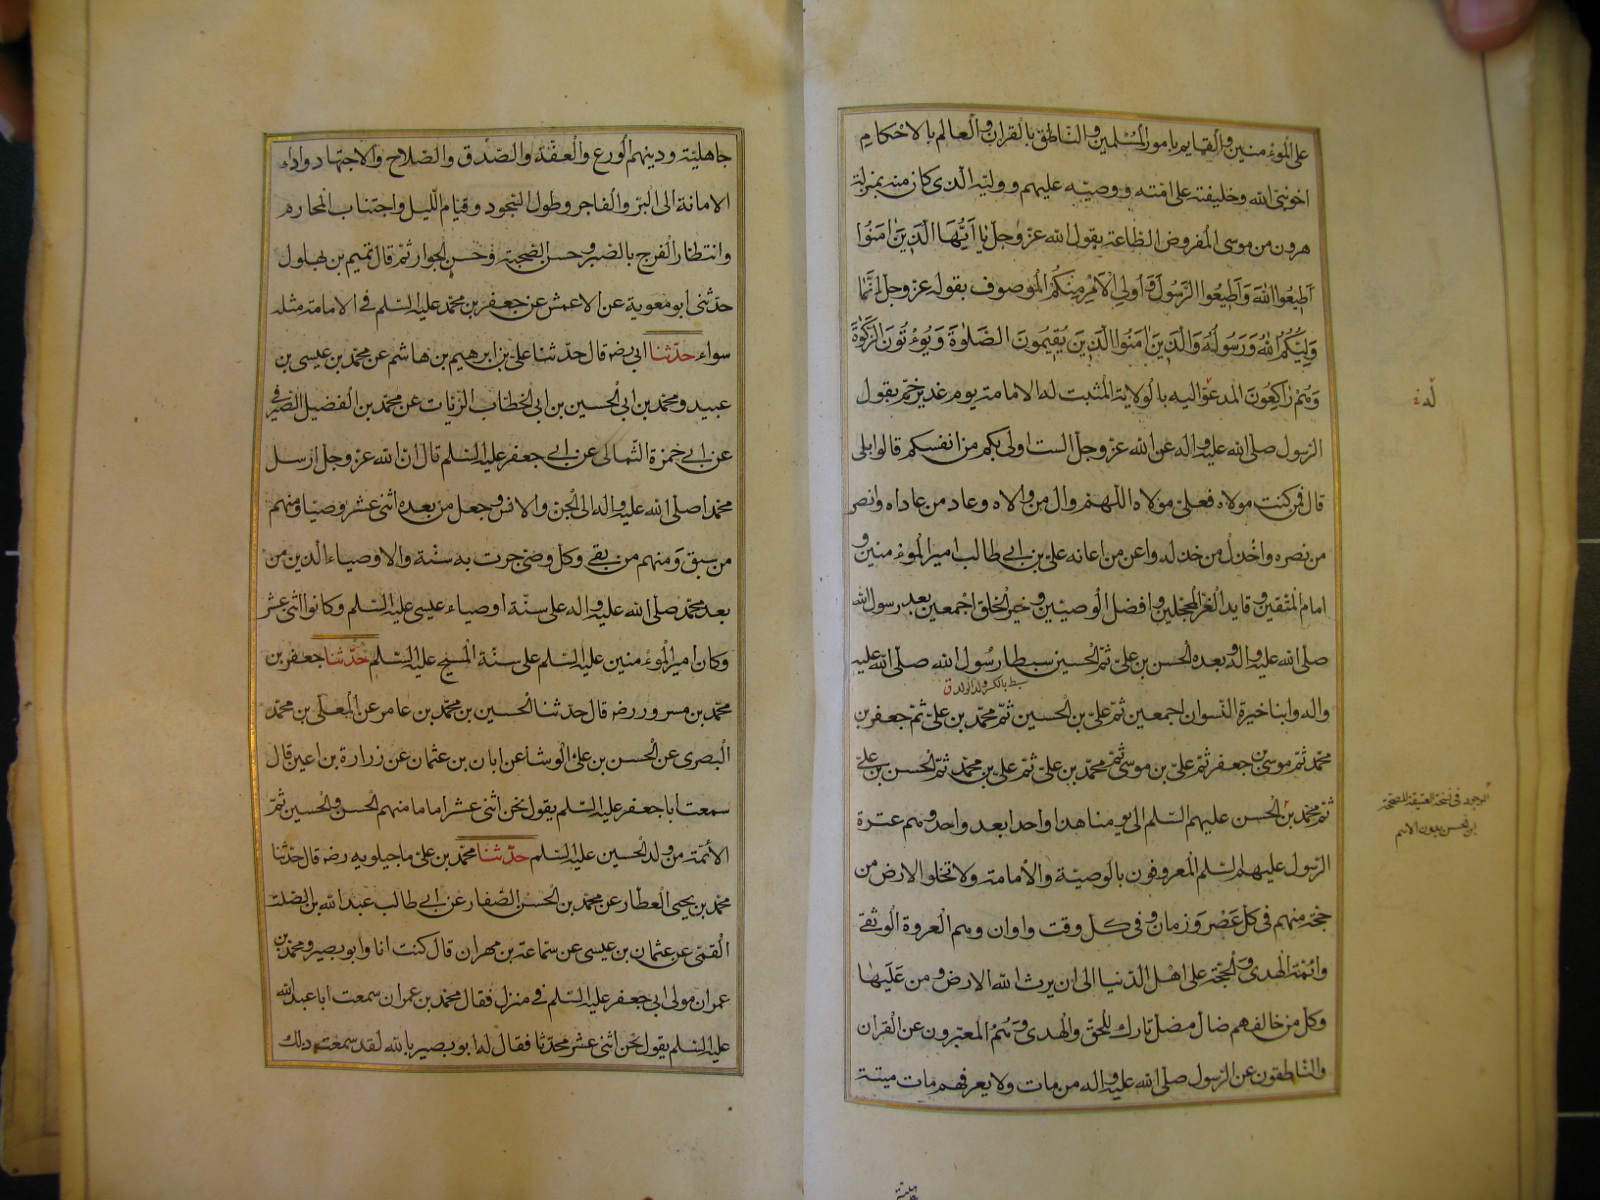 على المؤمنين والقايم بامور المسلمين والناطق بالقران والعالم بالاحكام
اخو نبى الله وخليفته على امته ووصيه عليهم ووليه الذى كان منه بمنزلة
هرون من موسى المفروض الطاعة بقول الله عز وجل يا ايها الذين امنوا
اطيعوا الله واطيعوا الرسول واولي الامر منكم الموصوف بقوله عز وجل انما
وليكم الله ورسوله والذين امنوا الذين يقيمون الصلوة ويؤتون الزكوة
وهم راكعون المدعو اليه بالولاية المثبت له الامامة يوم غدير خم بقول
له
الرسول صلى الله عليه واله عن الله عز وجل الست اولى بكم من انفسكم قالوا بلى
قال فمن كنت مولاه فعلى مولاه اللهم وال من والاه وعاد من عاداه وانصر
من نصره واخذل من خذله واعن من اعانه على بن ابي طالب امير المؤمنين و
امام المتقين وقايد الغر المحجلين وافضل الوصيين وخير الخلق اجمعين بعد رسول الله
صلى الله عليه واله وبعده الحسن بن على ثم الحسين سبطا رسول الله صلى الله عليه
سبط بالكسر ولد الولد ق
واله وابنا خيرة النسوان اجمعين ثم على بن الحسين ثم محمد بن على ثم جعفر بن
محمد ثم موسى بن جعفر ثم على بن موسى ثم محمد بن على ثم على بن محمد ثم الحسن بن على
ثم محمد بن الحسن عليهم السلم الى يومنا هذا واحدا بعد واحد وهم عترة
الموجود فى نسخة العتيقة المصححة
ابن الحسن بدون الاسم
الرسول عليهم السلم المعروفون بالوصية والامامة ولا تخلو الارض من
حجة منهم فى كل عصر وزمان وفى كل وقت واوان وهم العروة الوثقى
وائمة الهدى والحجة على اهل الدنيا الى ان يرث الله الارض ومن عليها
وكل من خالفهم ضال مضل تارك للحق والهدى وهم المعبرون عن القران
والناطقون عن الرسول صلى الله عليه واله من مات ولا يعرفهم مات ميتة
جاهلية
جاهلية ودينهم الورع والعفة والصدق والصلاح والاجتهاد واداء
الامانة الى البر والفاجر وطول السجود وقيام الليل واجتناب المحارم
وانتظار الفرج بالصبر وحسن الصحبة وحسن الجوار ثم قال تميم بن بهلول
حدثنى ابو معوية عن الاعمش عن جعفر بن محمد عليه السلم فى الامامة مثله
سواء حدثنا ابى رضه قال حدثنا على بن ابرهيم بن هاشم عن محمد بن عيسى بن
عبيد ومحمد بن ابى الحسين بن ابى الخطاب الزيات عن محمد بن الفضيل الصيرفى
عن ابي حمزة الثمالى عن ابي جعفر عليه السلم قال ان الله عز وجل ارسل
محمدا صلى الله عليه واله الى الجن والانس وجعل من بعده اثنى عشر وصيا ومنهم
من سبق ومنهم من بقى وكل وصى جرت به سنة والاوصياء الذين من
بعد محمد صلى الله عليه واله على سنة اوصياء عيسى عليه السلم وكانوا اثنى عشر
وكان امير المؤمنين عليه السلم على سنة المسيح عليه السلم حدثنا جعفر بن
محمد بن مسرور رضه قال حدثنا الحسين بن محمد بن عامر عن المعلى بن محمد
البصرى عن الحسن بن على الوشا عن ابان بن عثمان عن زرارة بن اعين قال
سمعت ابا جعفر عليه السلم يقول نحن اثنى عشر اماما منهم الحسن والحسين ثم
الائمة من ولد الحسين عليه السلم حدثنا محمد بن على ماجيلويه رضه قال حدثنا
محمد بن يحيى العطار عن محمد بن الحسن الصفار عن ابي طالب عبد الله بن الصلت
القمى عن عثمان بن عيسى عن سماعة بن مهران قال كنت انا وابو بصير ومحمد بن
عمران مولى ابى جعفر عليه السلم فى منزل فقال محمد بن عمران سمعت ابا عبد الله
عليه السلم يقول نحن اثنى عشر محدثا فقال له ابو بصير بالله لقد سمعت ذلك